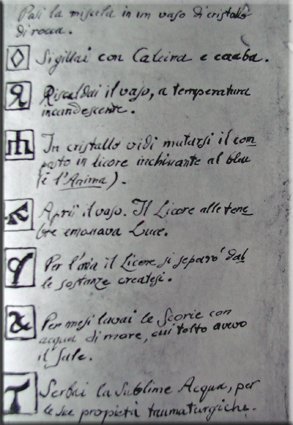 Posi la miscela in un vaso di cristallo
di rocca.
Sigillai con Calcina e
Riscaldai il vaso, a temperatura
incandescente.
In cristallo vidi mutarsi il com
posto in licore inchinante al bleu
(è l'Anima).
Aprii il vaso. Il Licore alle tene
bre emanava Luce.
Per l'aria il Licore, si separò dal
le sostanze createsi.
Per mesi lavai le Scorie con
acqua di mare, cui tolto avevo
il sale.
Serbai la Sublime Acqua, per
le sue propietà taumaturgiche.